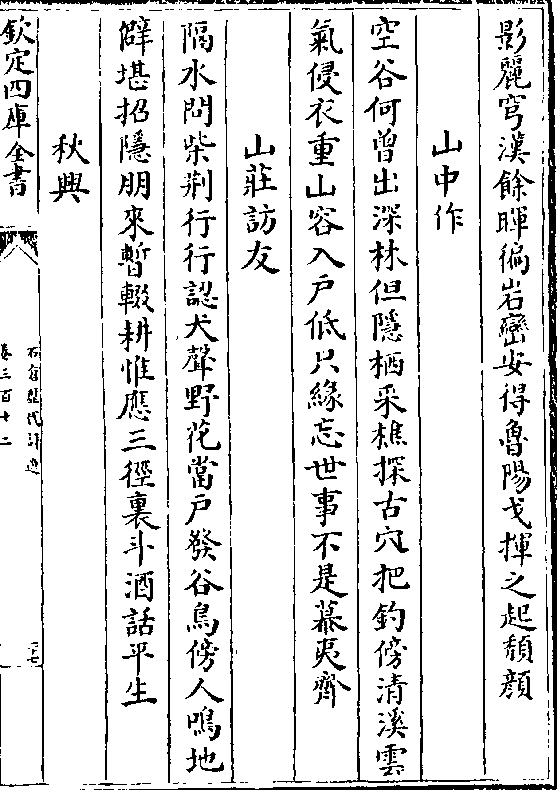 影麗穹漢餘暉徧岩巒安得魯陽戈揮之起頽顔
山中作
空谷何曾出深林但隱栖采樵探古穴把釣傍清溪雲
氣侵衣重山容入戶低只緣忘世事不是慕夷齊
山莊訪友
隔水問柴荆行行認犬聲野花當戶發谷鳥傍人鳴地
僻堪招隱朋來暫輟耕惟應三徑裏斗酒話平生
秋興
欽定四庫全書
卷三百十二